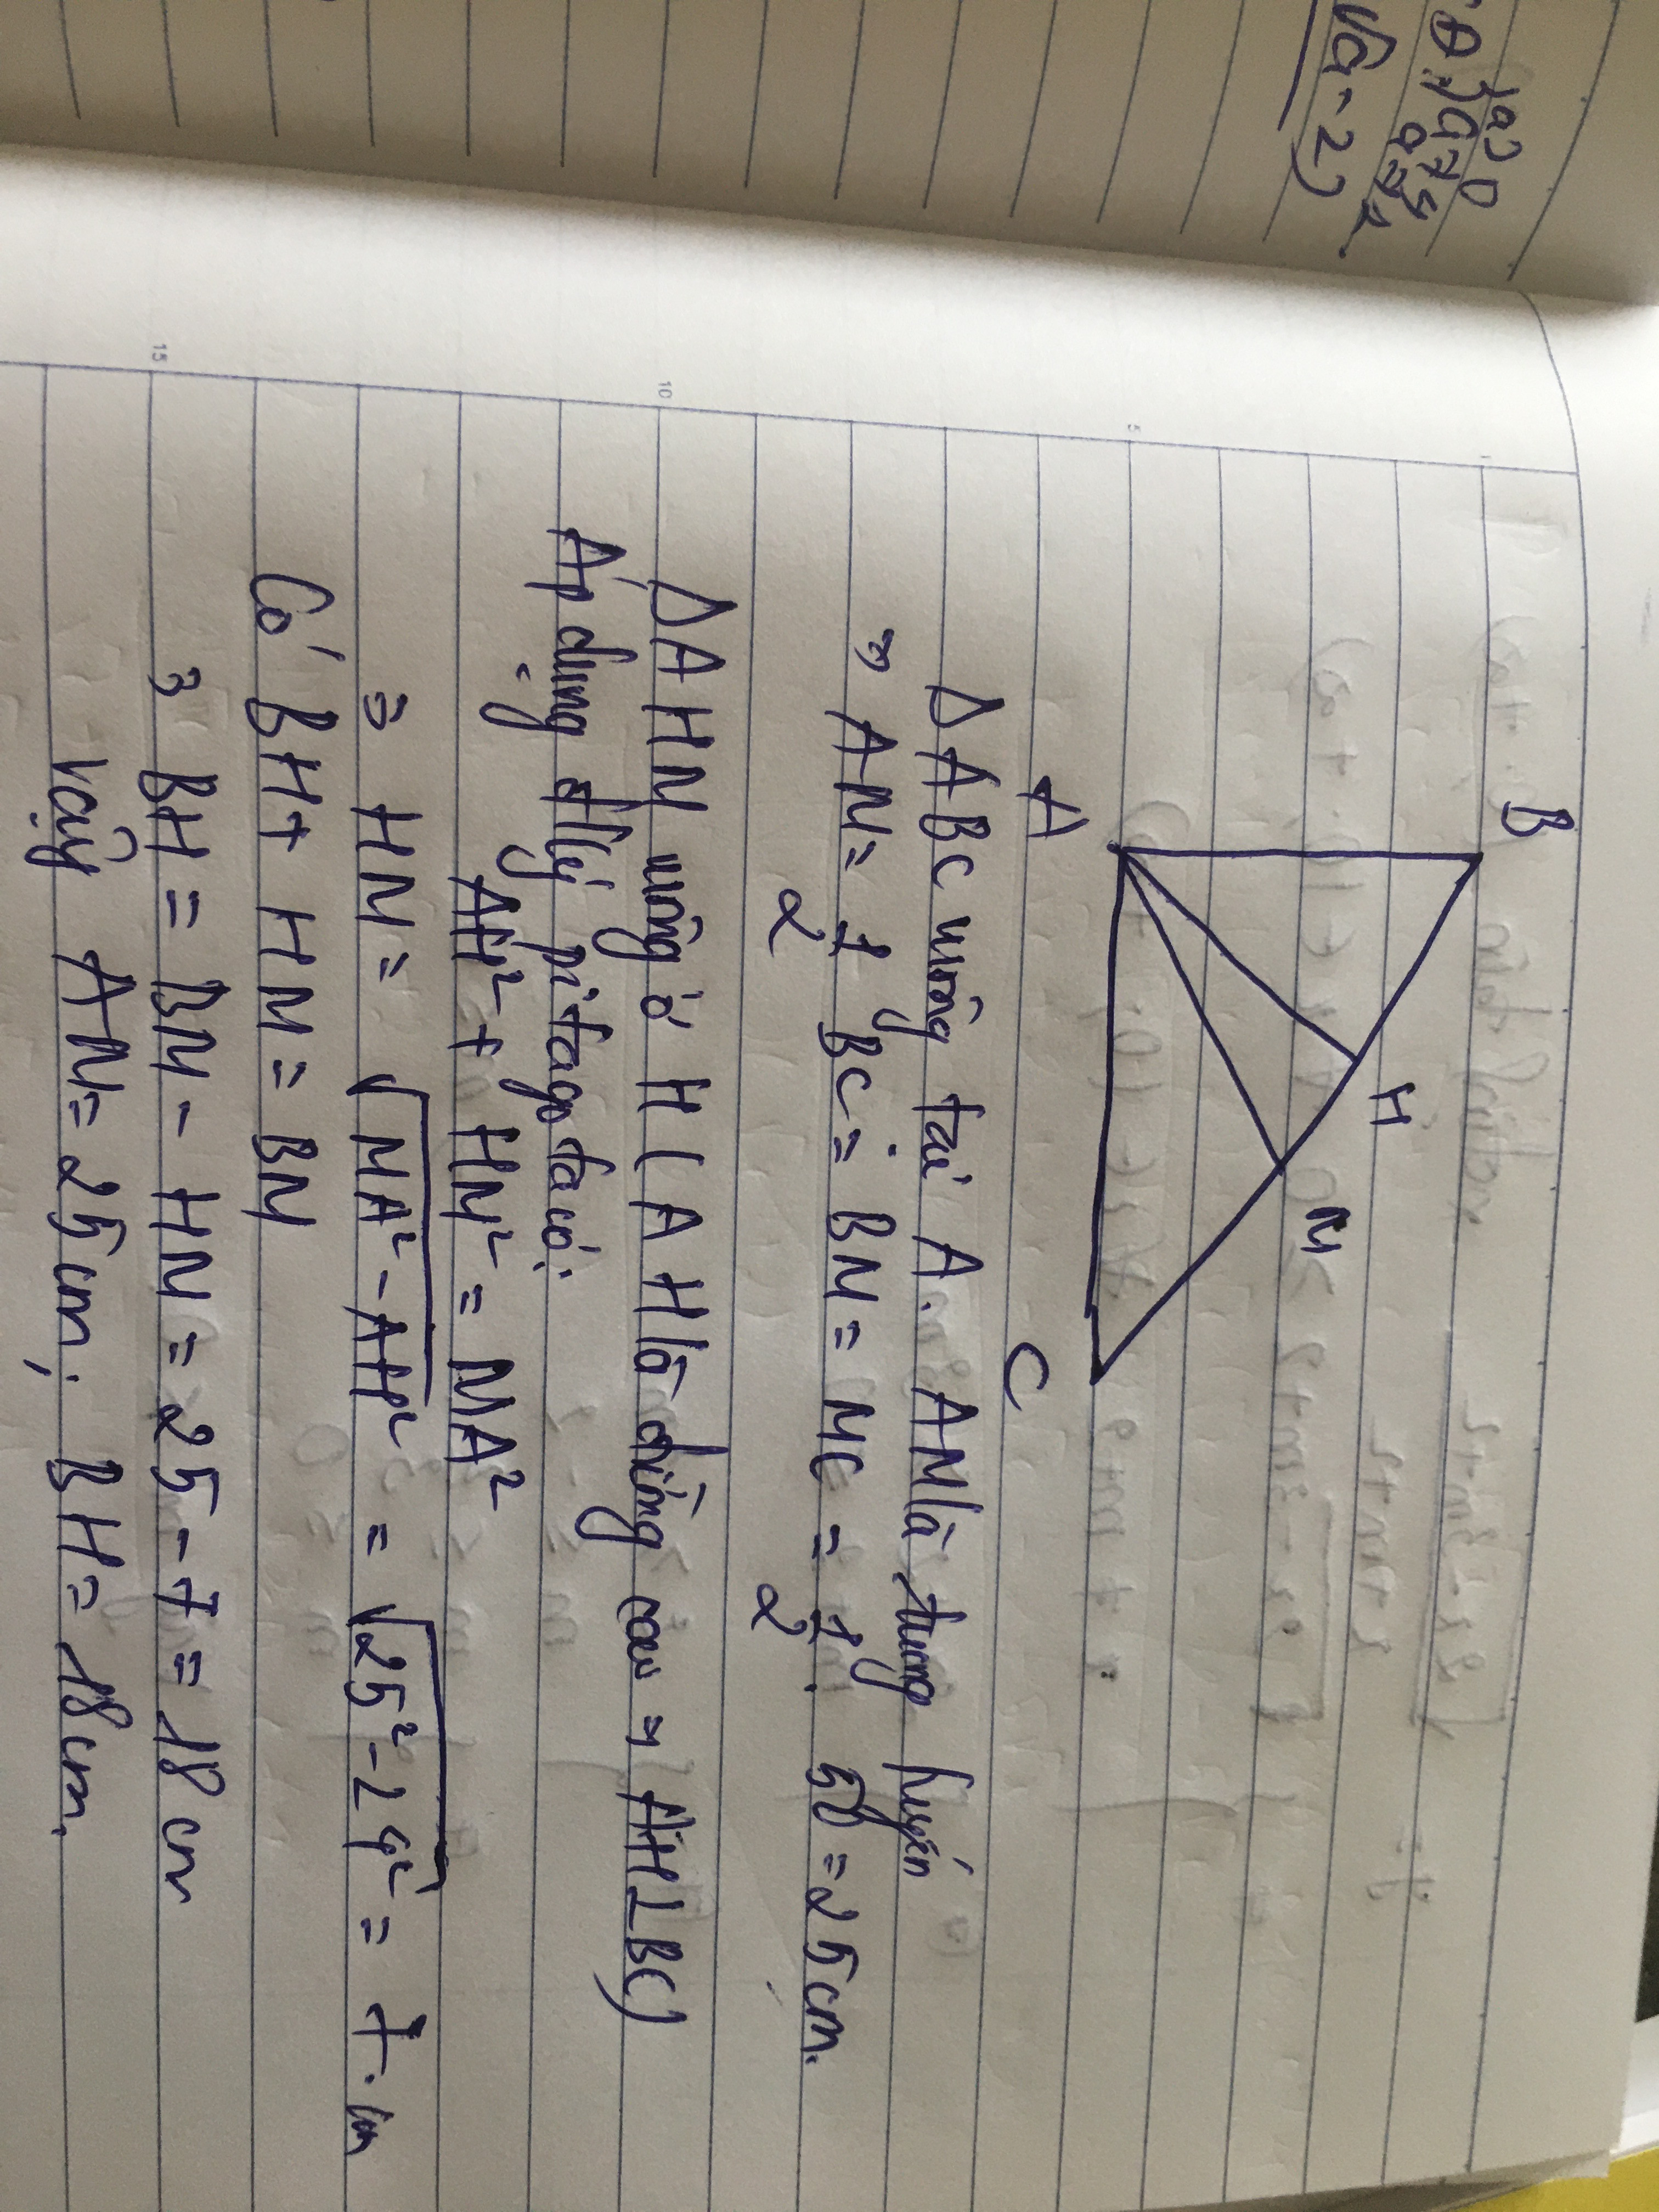 B
H
M
A
C
Δ ABC vuông tại A. AM là trung tuyến
=> AM = 1/2 BC = BM = MC = 1/2 . 50 = 25 cm.
Δ AHM vuông ở H (AH là đường cao => AH ⊥ BC)
Áp dụng đlý pitago ta có:
AH² + HM² = MA²
=> HM = √(MA² - AH²) = √(25² - 24²) = 7 cm
Có BH + HM = BM
=> BH = BM - HM = 25 - 7 = 18 cm
Vậy AM = 25 cm; BH = 18 cm.
5
10
15